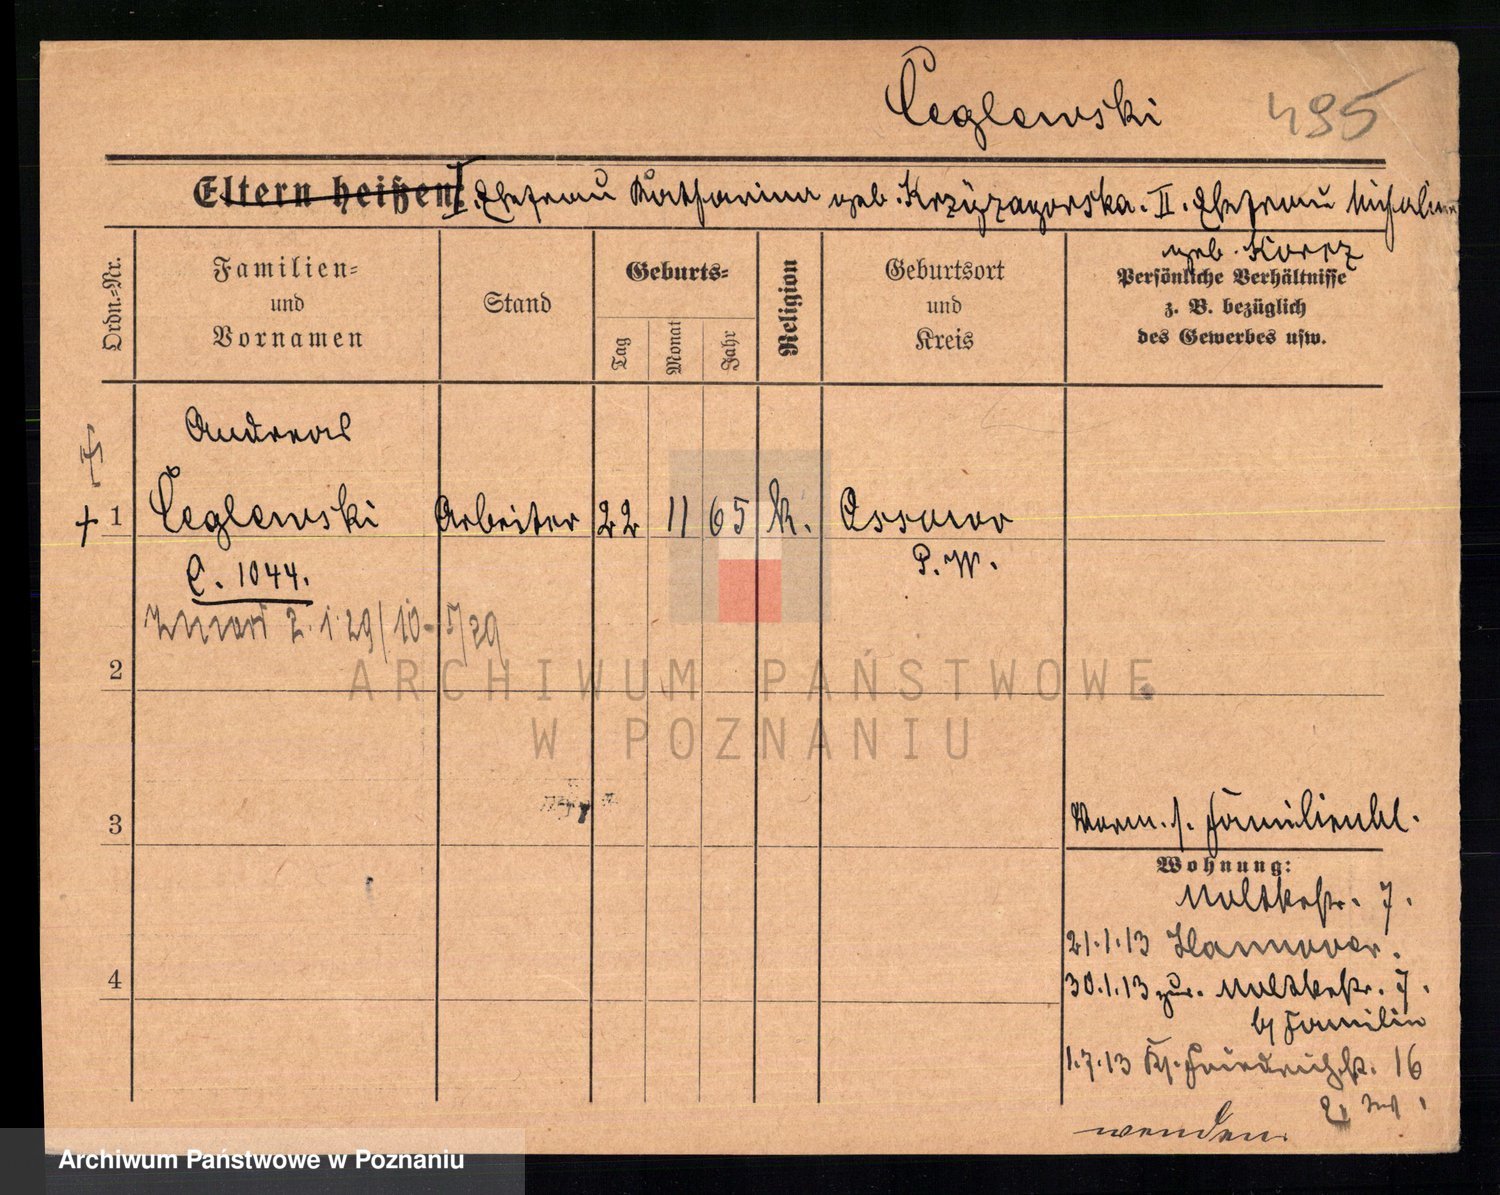 Ceglewski 495
Eltern heißen: I. Ehefrau Katharina geb. Krzyzagorska. II. Ehefrau Michalina
geb. Korcz
Ordn.-Nr.
Familien-
und
Vornamen
Stand
Geburts-
Tag
Monat
Jahr
Religion
Geburtsort
und
Kreis
Persönliche Verhältnisse
z. B. bezüglich
des Gewerbes usw.
Andreas
+ 1 Ceglewski Arbeiter 22 11 65 k.
P. W.
C. 1044.
2. 1. 29/10
2
ARCHIWUM PAŃSTWOWE
W POZNANIU
3
Verm. s. Familienbl.
Wohnung:
Moltkestr. 7.
21.1.13 Hannover.
4
30.1.13 zur. Moltkestr. 7.
b/ Familie
1.7.13 Ks. Friedrichstr. 16
wenden
Archiwum Państwowe w Poznaniu